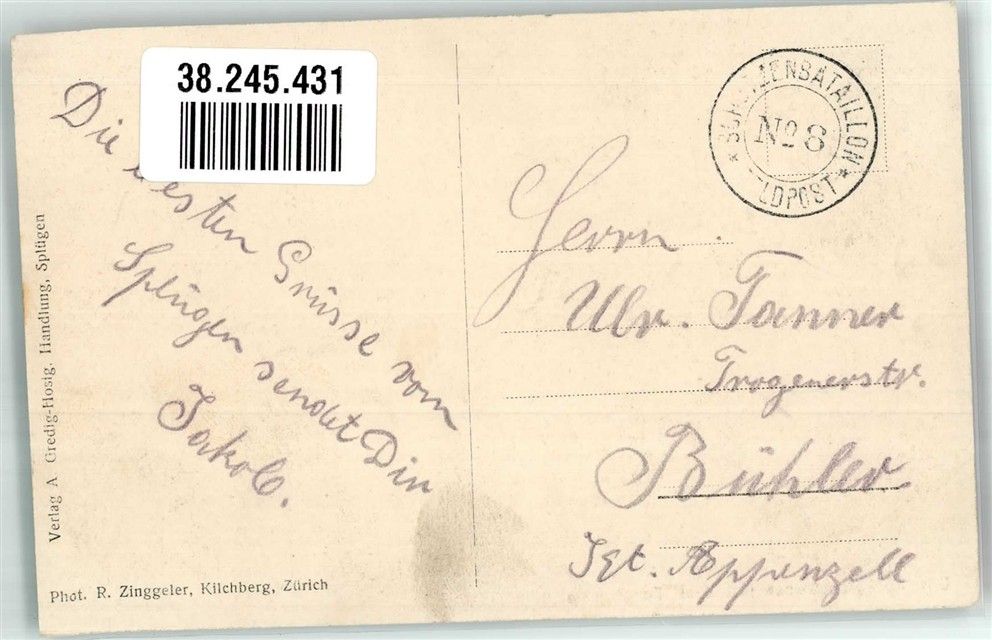 38.245.431
Die besten Grüsse vom
Splügen sendet Dir
Jakob.
Verlag A Gredig-Hosig. Handlung, Splügen
Phot. R. Zinggeler, Kilchberg, Zürich
* SCHÜTZENBATAILLON *
No 8
FELDPOST
Herrn
Ulr. Tanner
Trogenerstr.
Bühler
Kt. Appenzell